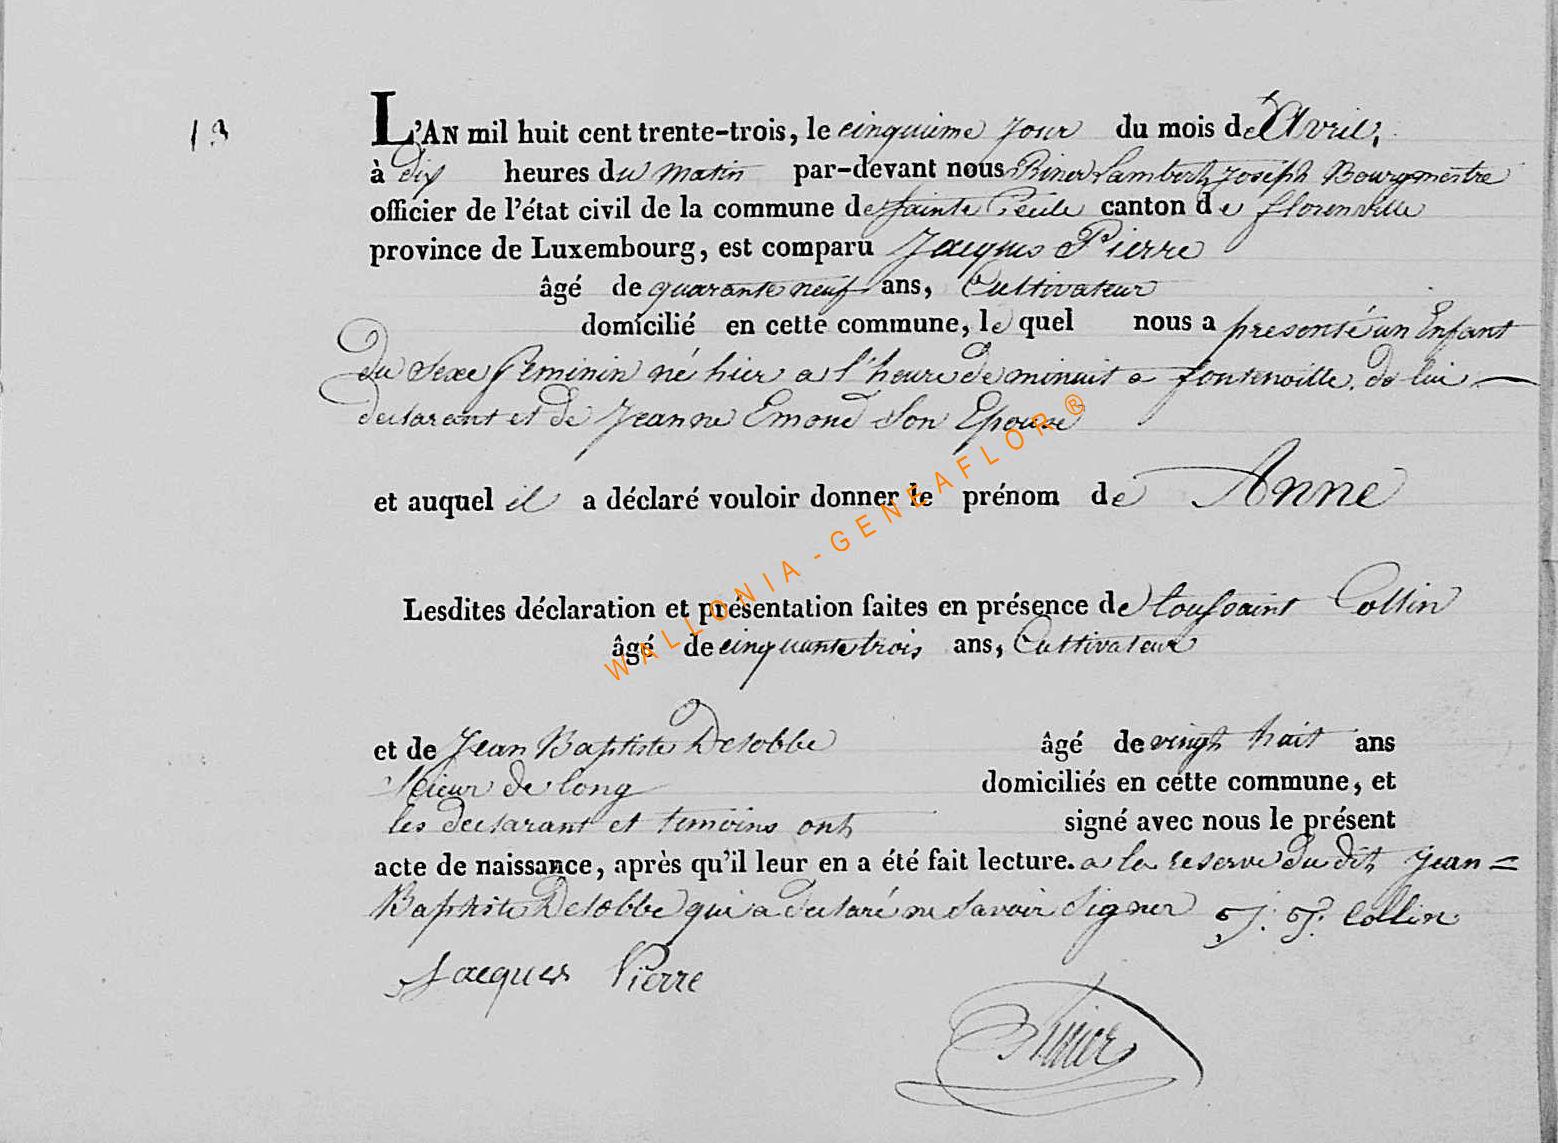 13
L'AN mil huit cent trente-trois, le cinquieme jour du mois de Avril,
à dix heures du matin par-devant nous Riner Lambert Joseph Bourgmestre
officier de l'état civil de la commune de Sainte Cécile canton de florenville
province de Luxembourg, est comparu Jacques Pierre
âgé de quarante neuf ans, Cultivateur
domicilié en cette commune, le quel nous a presenté un Enfant
du Sexe feminin né hier a l'heure de minuit a fontenoille, de lui
declarant et de Jeanne Emond Son Epouse
et auquel il a déclaré vouloir donner le prénom de Anne
Lesdites déclaration et présentation faites en présence de toussaint Collin
âgé de cinquante trois ans, Cultivateur
et de Jean Baptiste Delobbe âgé de vingt huit ans
Scieur de long domiciliés en cette commune, et
les declarant et temoins ont signé avec nous le présent
acte de naissance, après qu'il leur en a été fait lecture. a la reserve du dit Jean=
Baptiste Delobbe qui a declaré ne Savoir Signer J. J. Collin
Jacques Pierre
WALLONIA-GENEAFLOR®